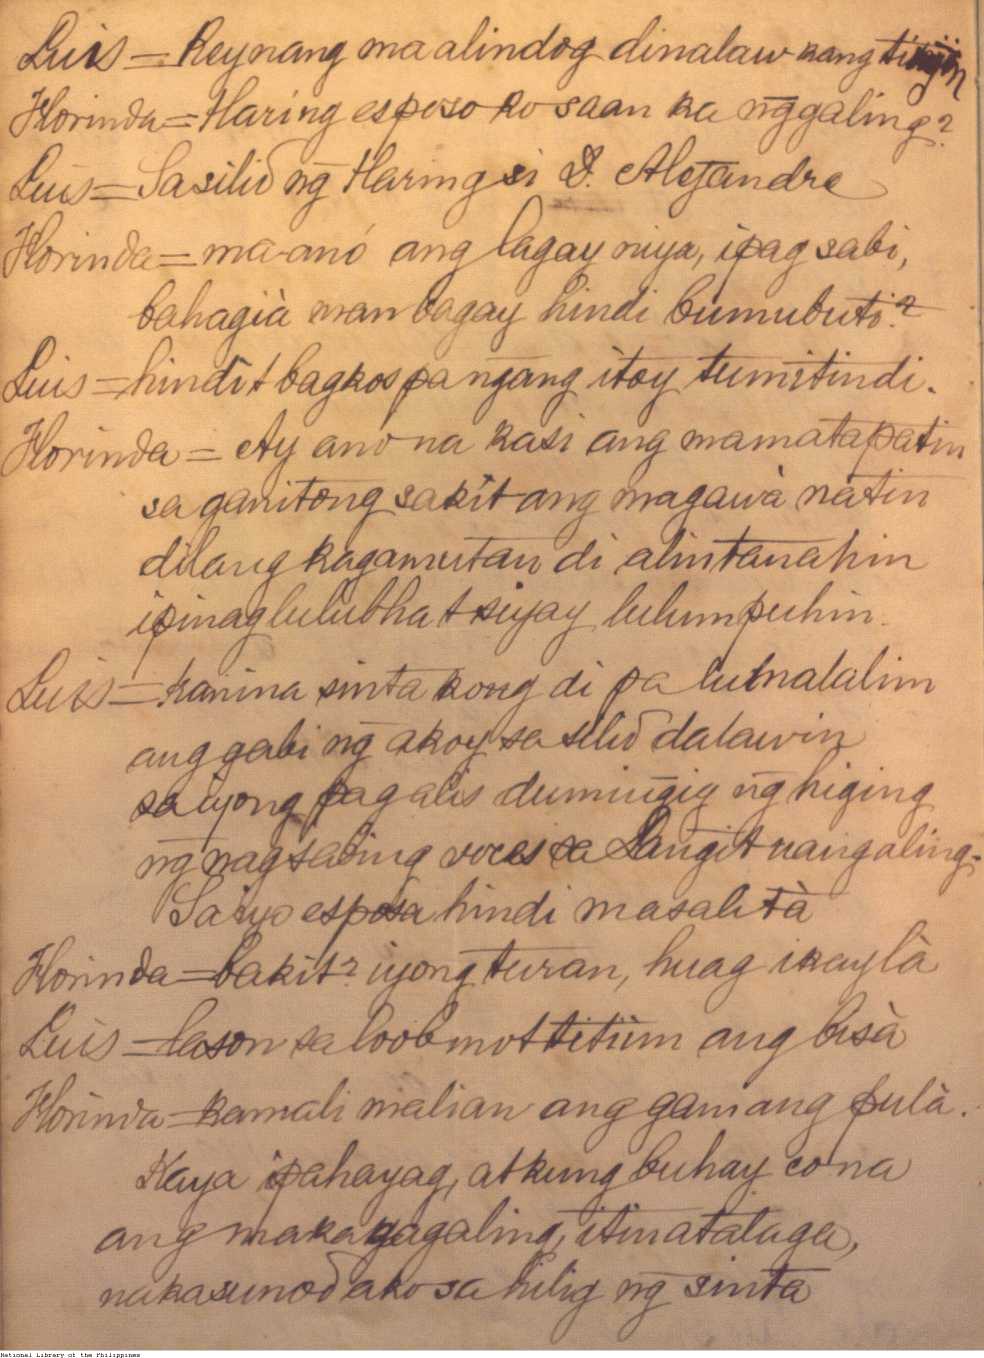 Luis = Reynang maalindog dinalaw kang
Florinda = Haring esposo ko saan ka ng̃galing?
Luis = Sa silid ng̃ Haring si D. Alejandre
Florinda = ma-anó ang lagay niya, ipag sabi,
bahagià man bagay hindi bumubuti?
Luis = hindi't bagkos pa ng̃ang itoy tumitindi.
Florinda = Ay ano na kasi ang mamatapatin
sa ganitong sakit ang magawà natin
dilang kagamutan di alintanahin
ipinaglulubha't siyay lulumpuhin.
Luis = Kanina sinta kong di pa lumalalim
ang gabi ng̃ akoy sa silid dalawin
sa iyong pag alis dumiñgig ng̃ higing
ng̃ nagsabing voces sa Lang̃it nangaling.
Sa iyo esposa hindi masalità
Florinda = bakit? iyong turan, huag ikaylà
Luis = lason sa loob mo't titiim ang bisà
Florinda = kamali malian ang gamang pulà.
Kaya ipahayag, at kung buhay co na
ang makagagaling, itinatalaga,
nakasunod ako sa hilig ng̃ sinta
National Library of the Philippines